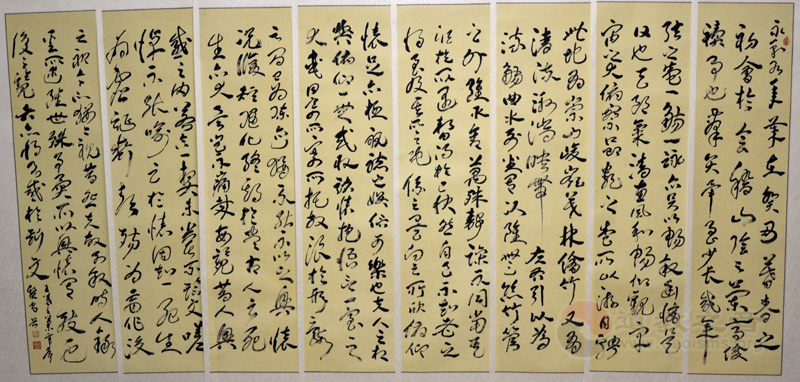 永和九年歲在癸丑暮春之
初會於會稽山陰之蘭亭修
禊事也群賢畢至少長咸集
弦之盛一觴一詠亦足以暢敘幽情是
日也天朗氣清惠風和暢仰觀宇
宙之大俯察品類之盛所以游目騁
此地有崇山峻嶺茂林修竹又有
清流激湍映帶左右引以為
流觴曲水列坐其次雖無絲竹管
之外雖取舍萬殊靜躁不同當其
欣於所遇暫得於己快然自足不知老之
將至及其所之既倦之矣向之所欣俯仰
懷足以極視聽之娛信可樂也夫人之相
與俯仰一世或取諸懷抱悟言一室之
內或因寄所托放浪於形骸
之間已為陳跡猶不能不以之興懷
況修短隨化終期於盡古人云死
生亦大矣豈不痛哉每覽昔人興
感之由若合一契未嘗不臨文嗟
悼不能喻之於懷固知一死生
為虛誕齊彭殤為妄作後
之視今亦猶今之視昔悲夫故列敘時人錄
其所述雖世殊事異所以興懷其致一也
後之覽者亦將有感於斯文